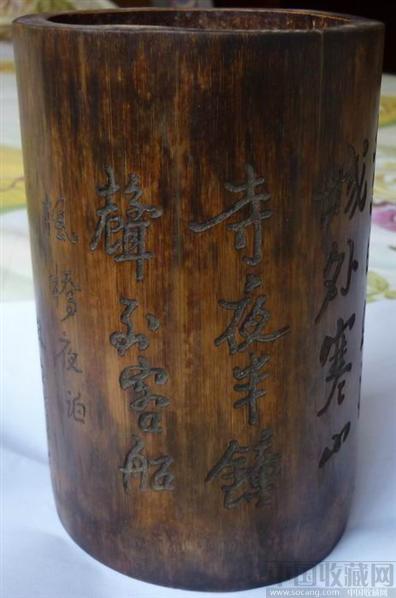 城外寒山
寺夜半鐘
聲到客船
楓橋夜泊
中国收藏网
www.socang.com 中国收藏网